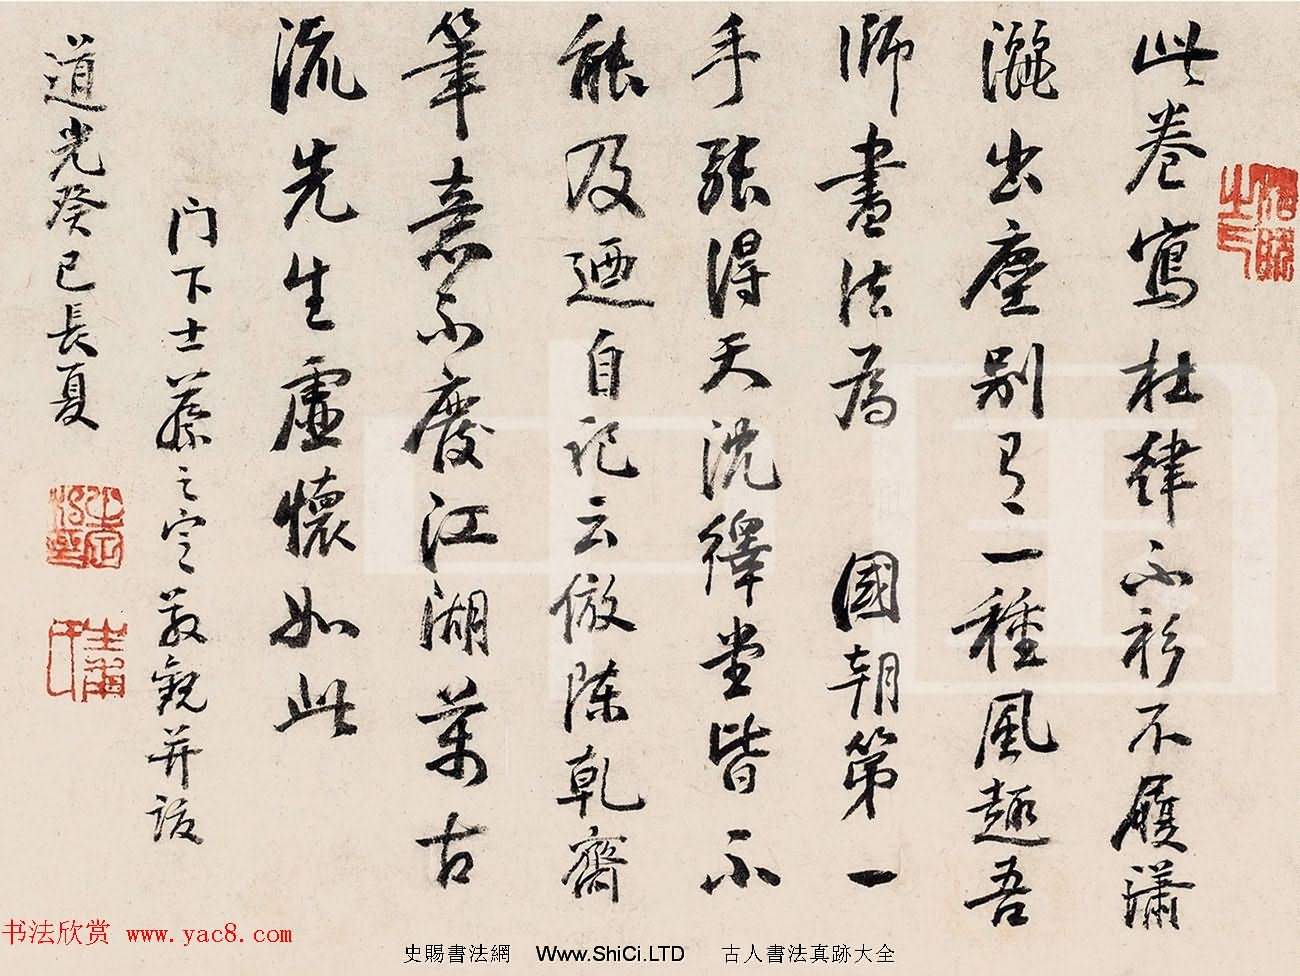 此卷寫杜律不衫不履瀟
灑出塵別有一種風趣吾
師書法為 國朝第一
手張得天沈繹堂皆不
能及迺自記云倣陳乾齋
筆意不廢江湖萬古
流先生虛懷如此
门下士蔡之定敬觀并跋
道光癸巳長夏
书法欣赏 www.yac8.com
史賜書法網 Www.ShiCi.LTD 古人書法真跡大全